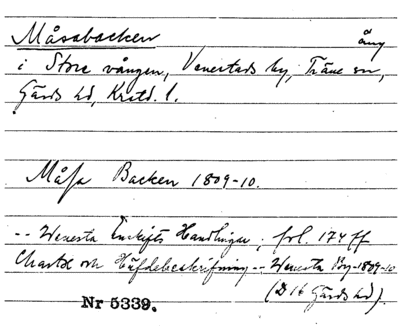 Måsabacken äng
i Store vången, Venestads by, Träne sn,
Gärds hd, Kristd. l.
Måsa Backen 1809-10.
-- Wenesta Enskifts Handlingar; fol. 174 ff
Charta och Häfdebeskrifning -- Wenesta By-1809-10
(D 16 Gärds hd).
Nr 5339.